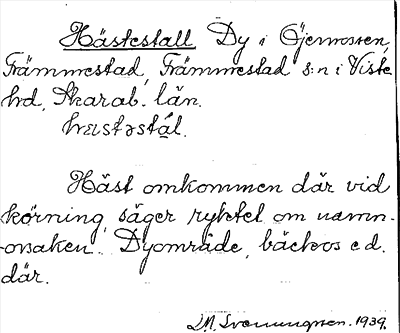 Hästestall Dy i Öjemossen,
Främmestad, Främmestad s:n i Viste
hd, Skarab. län.
hæstəstál.
Häst omkommen där vid
körning, säger ryktet om namn-
orsaken. Dyområde, bäckos e.d.
där.
Svenungsson. 1939.